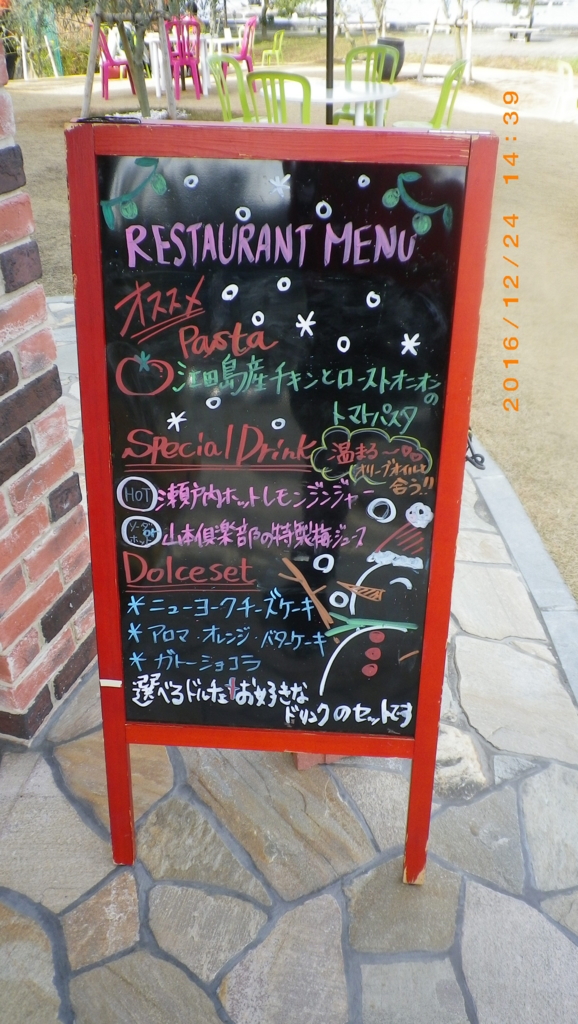 RESTAURANT MENU
オススメ
Pasta
江田島産チキンとローストオニオンの
トマトパスタ
Special Drink
温まる〜
オリーブオイルと
合う!!
HOT 瀬戸内ホットレモンジンジャー
ソーダ or ホット 山本倶楽部の特製梅ジュース
Dolceset
* ニューヨークチーズケーキ
* アロマ・オレンジ・バターケーキ
* ガトーショコラ
選べるドルチェ+お好きな
ドリンクのセットです
2016/12/24 14:39